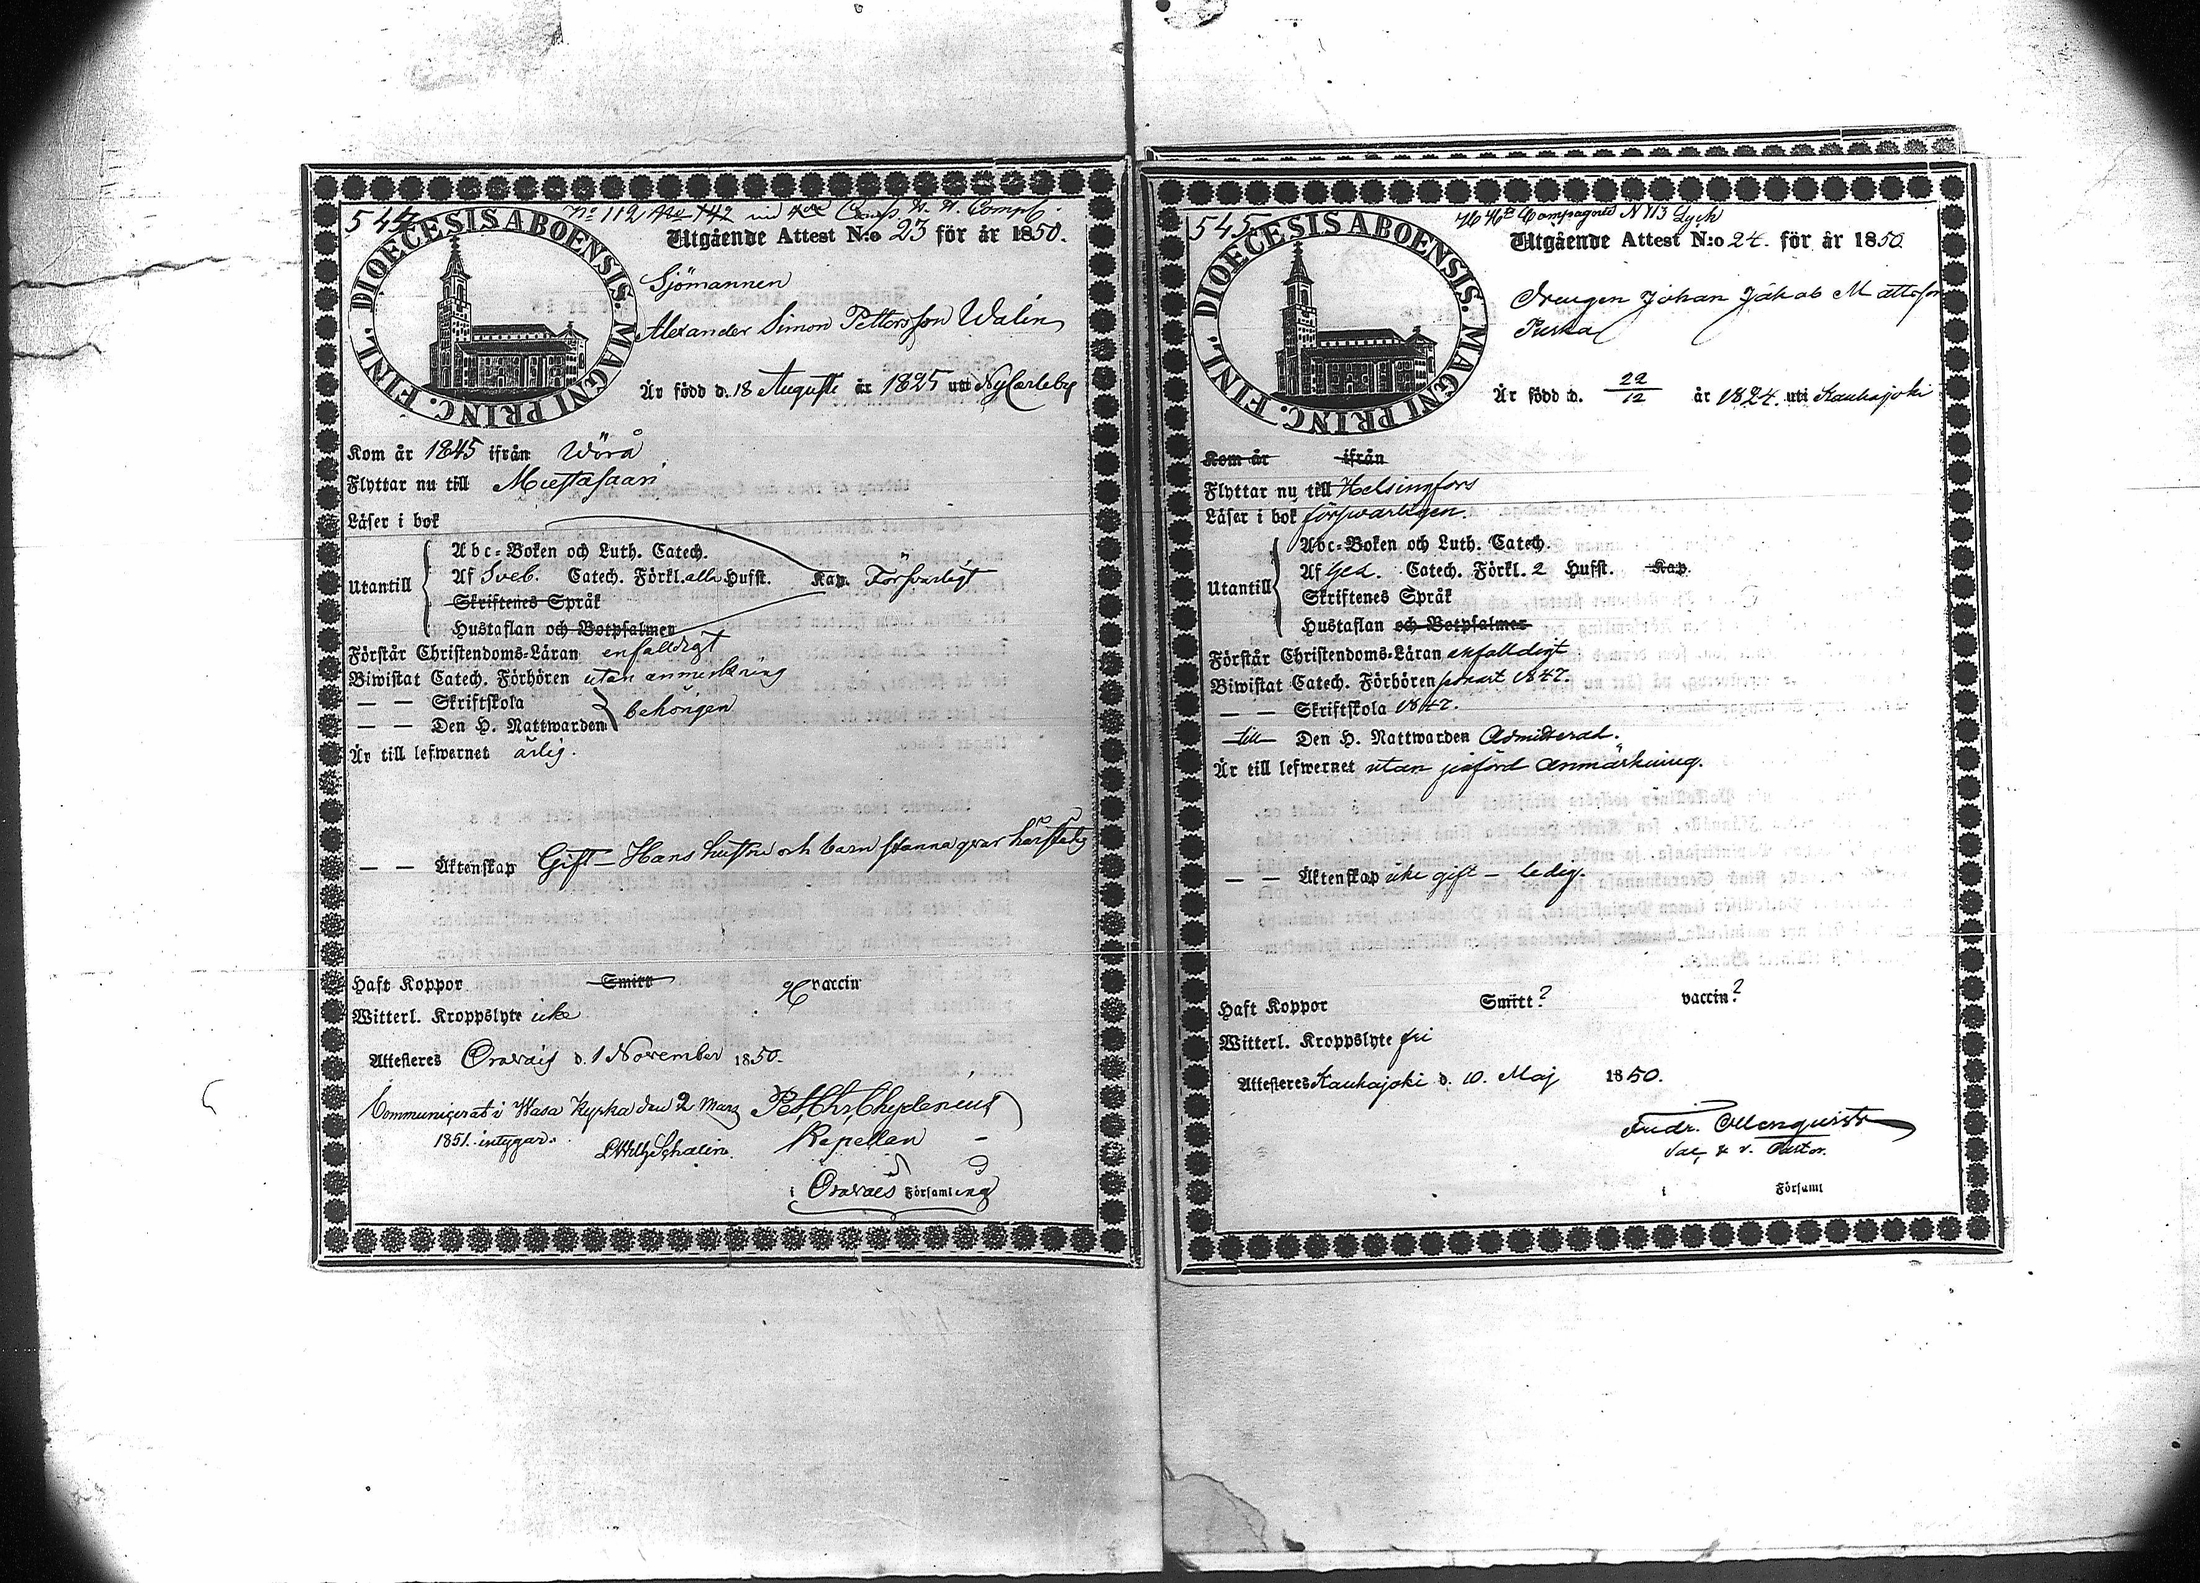 544
DIOECESIS ABOENSIS. MAGNI PRINC. FINL.
No 112
Utgående Attest N:o 23 för år 1850.
Sjömannen
Alexander Simon Pettersson Walin
Är född d. 18 Augusti år 1825 uti Nycarleby
Kom år 1845 ifrån Wörå
Flyttar nu till Mustasaari
Läser i bok
Utantill
Abc-Boken och Luth. Catech.
Af Sveb. Catech. Förkl. alla Hufst. Kap. Försvarligt
Skriftenes Språk
Hustaflan och Botpsalmer
Förstår Christendoms-Läran enfaldigt
Biwistat Catech. Förhören utan anmerkning
— — Skriftskola
— — Den H. Nattwarden behörigen
Är till lefwernet ärlig.
— — Äktenskap Gift – Hans hustru och barn stanna qvar
Haft Koppor Smitt vaccin
Witterl. Kroppslyte icke
Attesteres Oravais d. 1 November 1850.
Communicerat i Wasa Kyrka den 2 Mars
1851. intygar.
Schalin.
Pet. Chr. Chydenius
Kapellan
i Oravais Församling
545
DIOECESIS ABOENSIS. MAGNI PRINC. FINL.
Compagnie N 113
Utgående Attest N:o 24. för år 1850
Drengen Johan Jakob Mattsson
Puska
Är född d. 22/12 år 1824. uti Kauhajoki
Kom år ifrån
Flyttar nu till Helsingfors
Läser i bok försvarligen.
Utantill
Abc-Boken och Luth. Catech.
Af Catech. Förkl. 2 Hufst. Kap.
Skriftenes Språk
Hustaflan och Botpsalmer
Förstår Christendoms-Läran enfalldigt
Biwistat Catech. Förhören 1847.
— — Skriftskola 1847.
till Den H. Nattwarden Admitterad.
Är till lefwernet utan anmärkning.
— — Äktenskap icke gift – ledig.
Haft Koppor Smitt? vaccin?
Witterl. Kroppslyte fri
Attesteres Kauhajoki d. 10. Maj 1850.
Sac, & v. Pastor.
i Församl